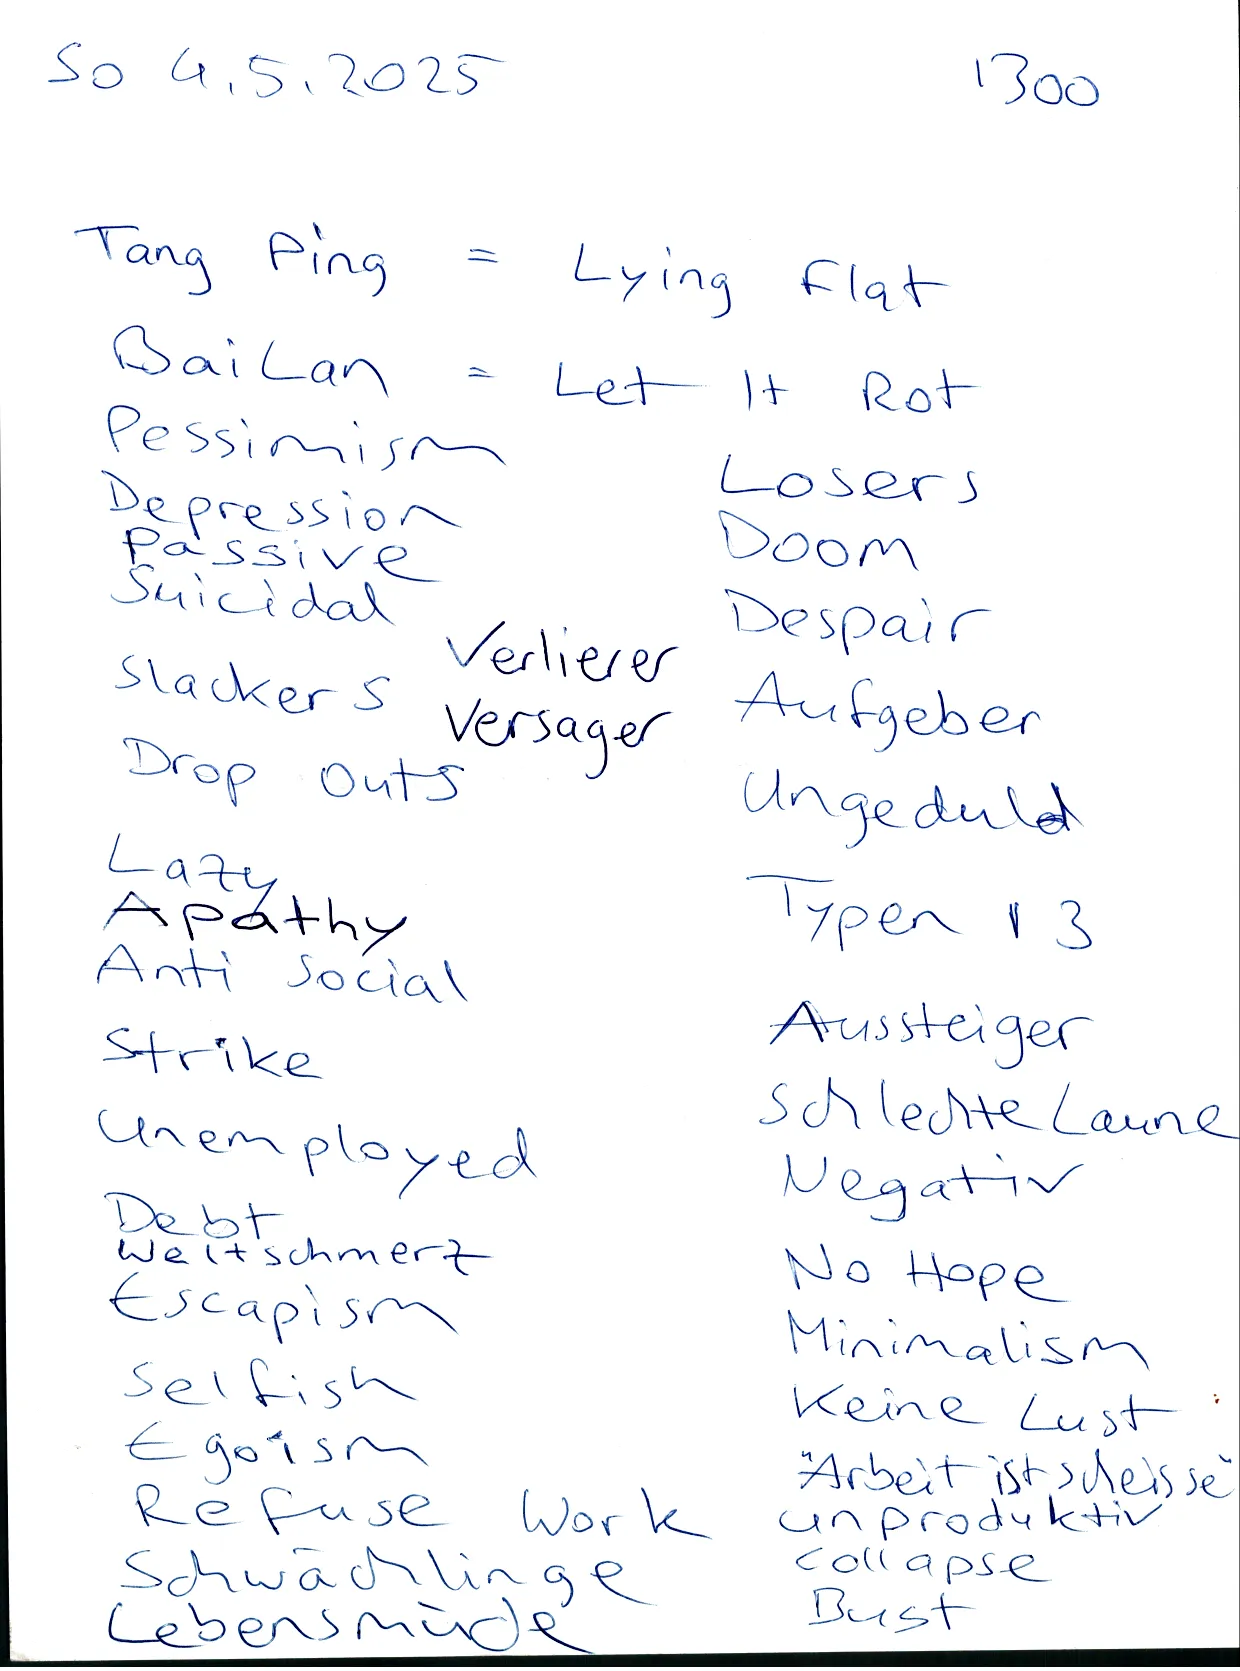 So 4.5.2025 1300
Tang Ping = Lying Flat
Bai Lan = Let It Rot
Pessimism
Depression
Passive
Suicidal
Slackers
Drop Outs
Verlierer
Versager
Lazy
Apathy
Anti Social
Strike
Unemployed
Debt
Weltschmerz
Escapism
Selfish
Egoism
Refuse Work
Schwächlinge
Lebensmüde
Losers
Doom
Despair
Aufgeber
Ungeduld
Typen 13
Aussteiger
Schlechte Laune
Negativ
No Hope
Minimalism
Keine Lust
"Arbeit ist scheisse"
unproduktiv
collapse
Bust